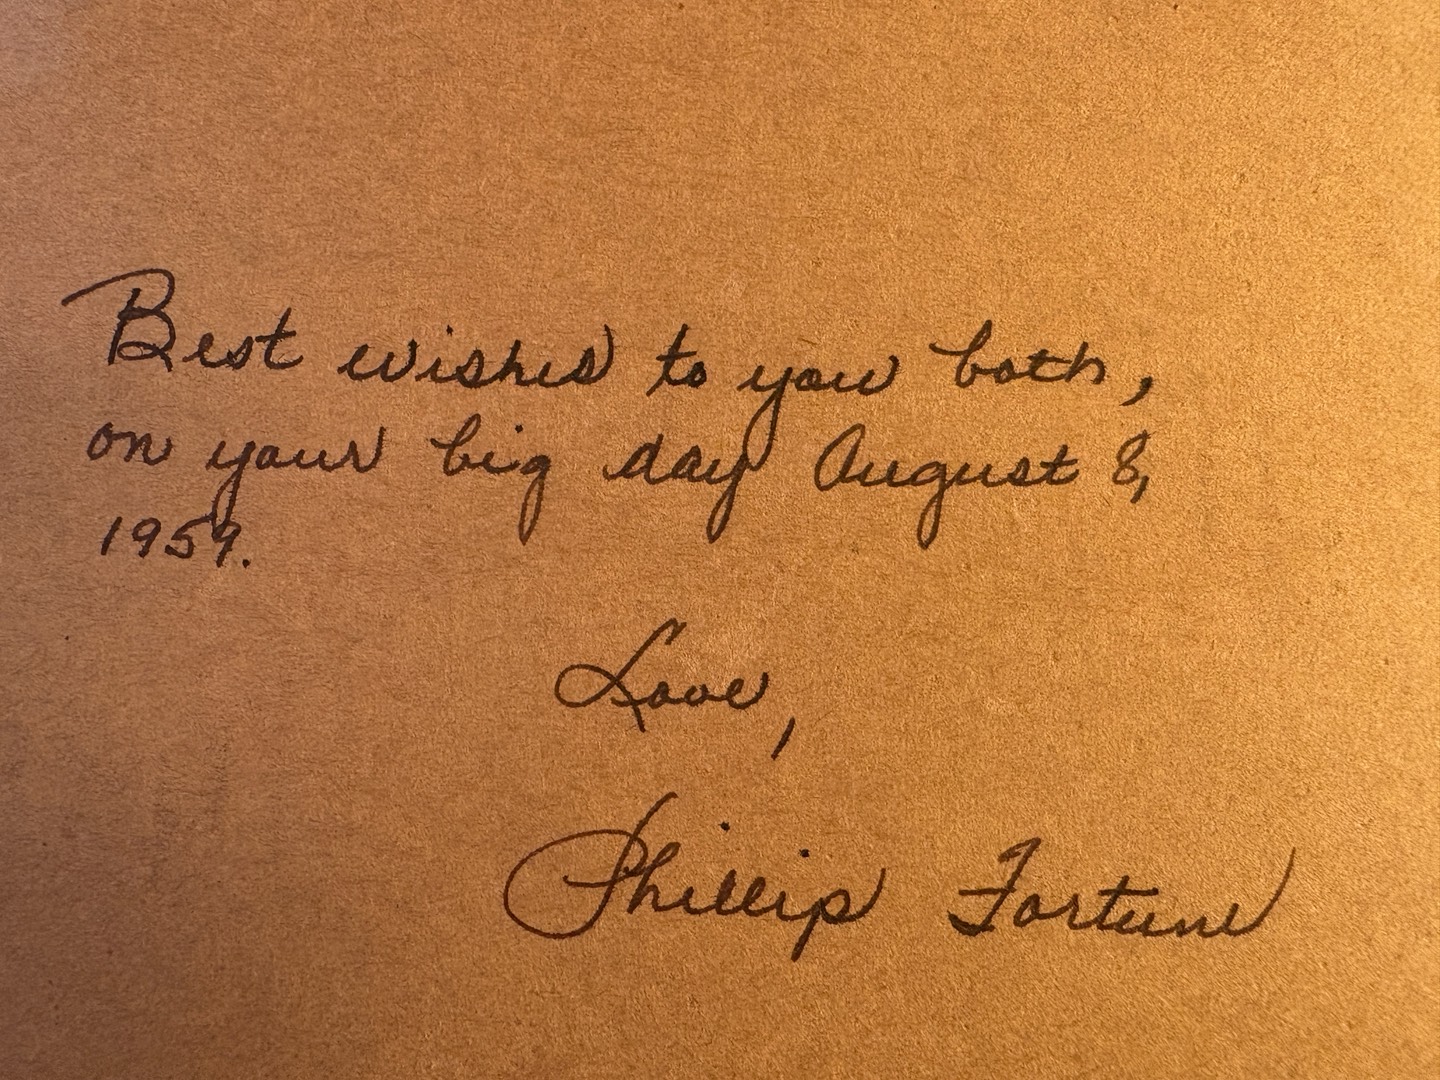 Best wishes to you both,
on your big day August 8,
1959.
Love,
Phillip Fortune